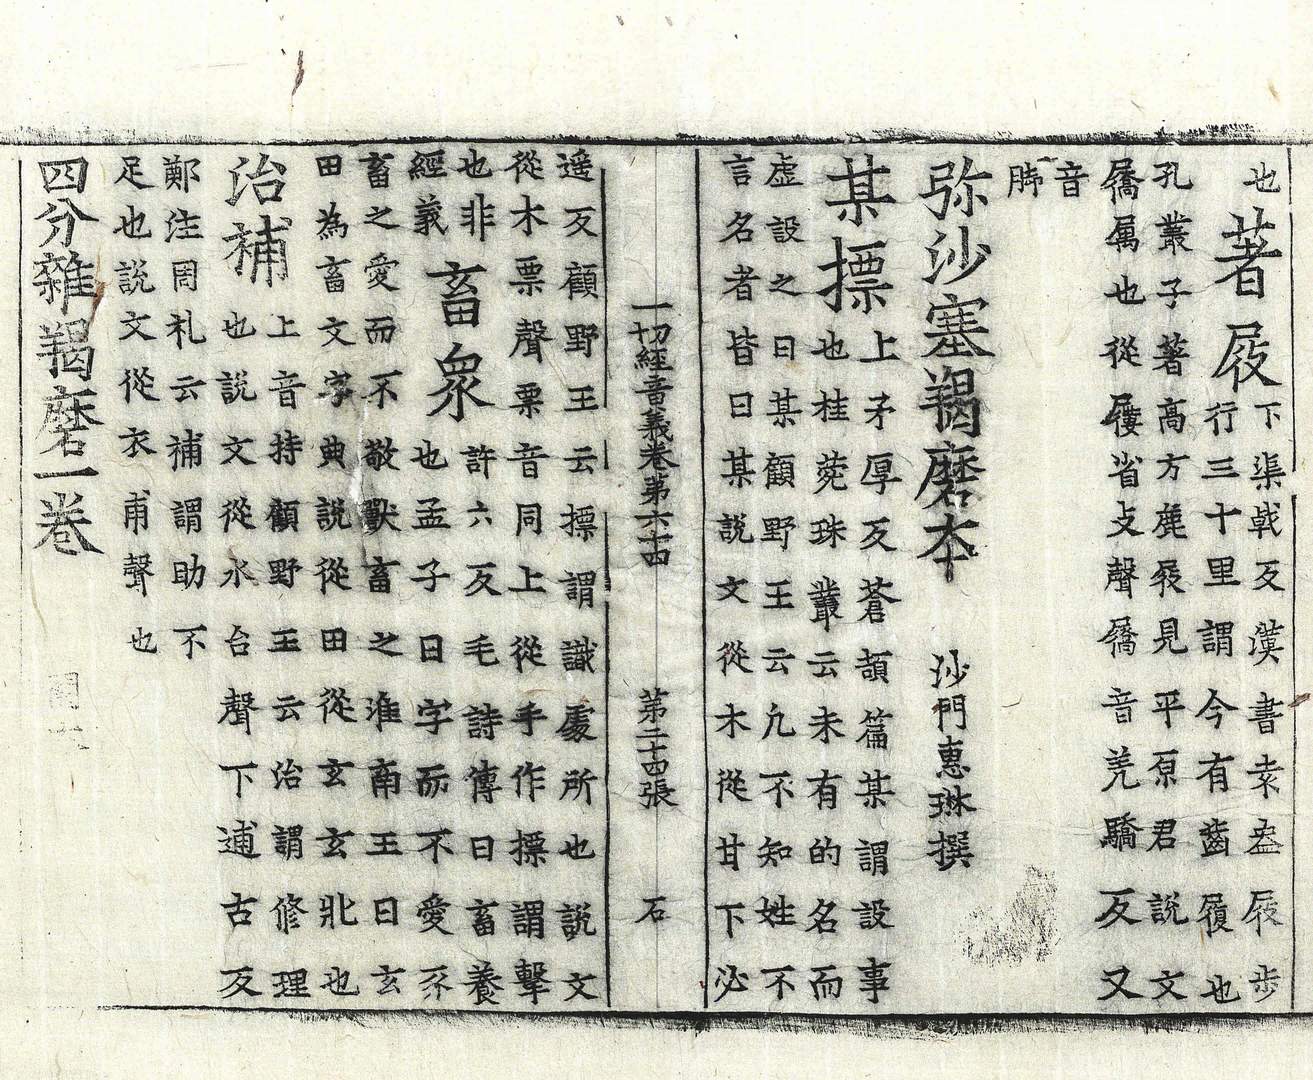 也著屐下渠戟反漢書袁盎屐步
行三十里謂今有齒履也
孔叢子著高方麁屐見平原君說文
屩屬也從屨省攴聲屩音羌驕反又
音
弥沙塞羯磨本 沙門惠琳撰
某摽上矛厚反蒼頡篇某謂設事
也桂菀珠叢云未有的名而
虛設之曰某顧野王云凡不知姓不
言名者皆曰某說文從木從甘下必
一切經音義卷第六十四 第二十四張 石
遥反顧野王云摽謂識處所也說文
從木票聲票音同上從手作摽謂擊
也非畜衆許六反毛詩傳曰畜養
經義也孟子曰字而不愛豕
畜之愛而不敬獸畜之淮南王曰玄
田為畜文字典說從田從玄玄北也
治補上音持顧野王云治謂修理
也說文從水台聲下逋古反
鄭注周礼云補謂助不
足也說文從衣甫聲也
四分雜羯磨一卷